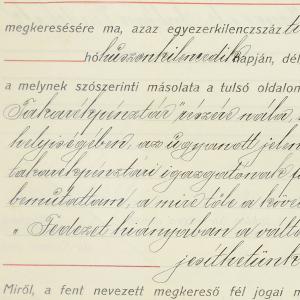 megkeresésére ma, azaz egyezerkilenczszáz
hó huszonkilencedik napján, dél
a melynek szószerinti másolata a tulsó oldalon
Takarékpénztár" részére nála,
helyiségében, az ugyanott jelen
takarékpénztári igazgatónak
bemutattam, a mire tőle a köve
„Fedezet hiányában a váltó
Miről, a fent nevezett megkereső fél jogai